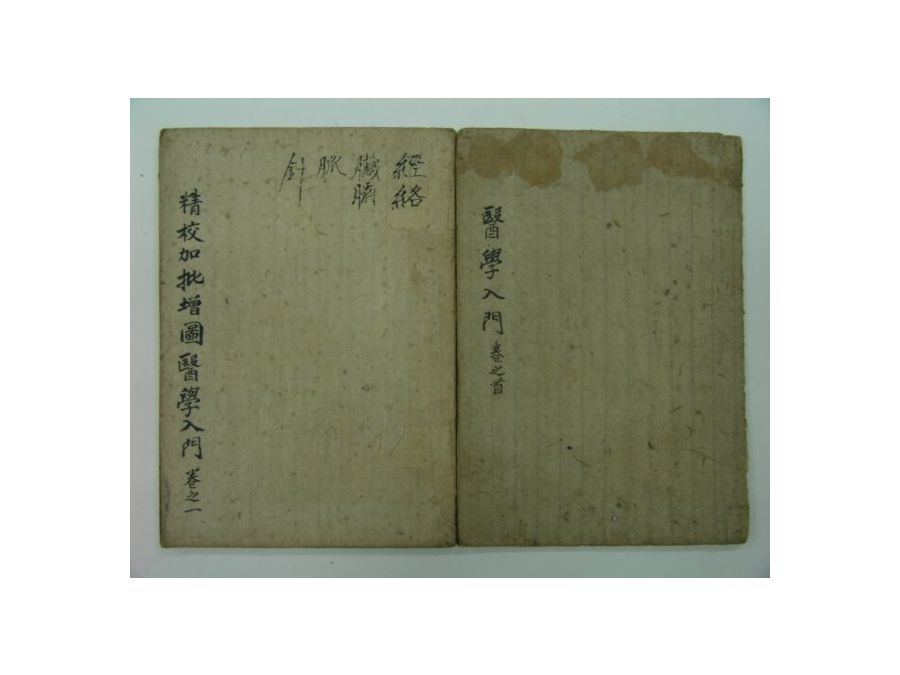 經絡
臟腑
脈
針
精校加批增圖醫學入門 卷之一
醫學入門 卷之首